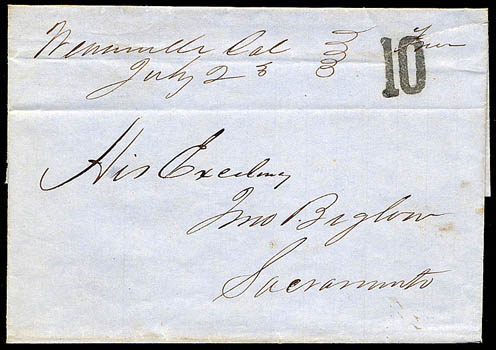 Weaverville Cal
July 2d
10
His Excelency
Jno Biglow
Sacramento